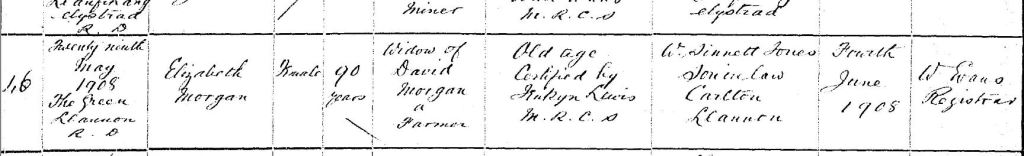 Llanfihangel
Miner
Ystrad
M.R.C.S
Ystrad
R.D
16
Twenty ninth
May
1908
The Green
Llannon
R.D
Elizabeth
Morgan
Female
90
years
Widow of
David
Morgan
a
Farmer
Old age
Certified by
Lewis
M.R.C.S
W. Sinnett Jones
Son in law
Carlton
Llannon
Fourth
June
1908
W Evans
Registrar